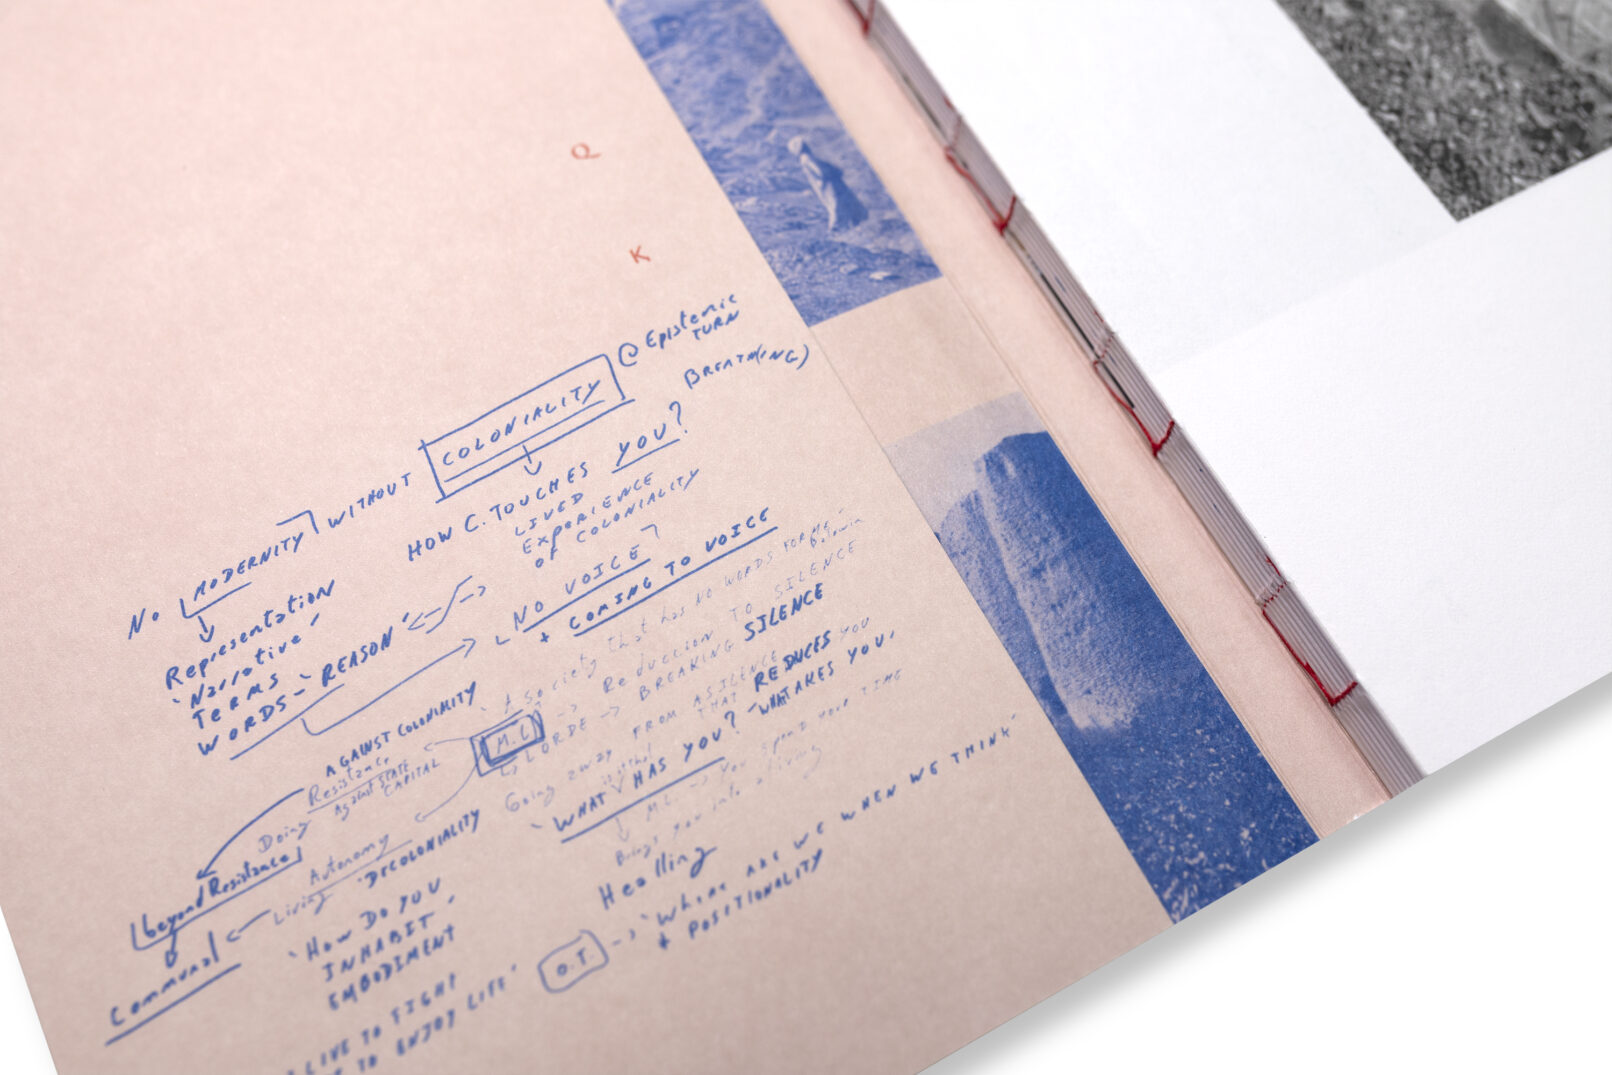 Q
K
@ Epistemic
TURN
BREATH(ING)
NO MODERNITY WITHOUT COLONIALITY
HOW C. TOUCHES YOU?
LIVED
EXPERIENCE
OF COLONIALITY
Representation
'Narrative'
TERMS
WORDS - 'REASON'
NO VOICE
+ COMING TO VOICE
'A society that has NO WORDS FOR ME'
Baldwin
-> Reduction TO SILENCE
LORDE -> BREAKING SILENCE
M.L.
Going away FROM A SILENCE
THAT REDUCES YOU
'WHAT HAS YOU?' - 'WHAT TAKES YOU'
M.L. -> YOU spend YOUR TIME
Brings you into a living
Healing
AGAINST COLONIALITY
Resistance
Against STATE
CAPITAL
Doing
beyond Resistance
Autonomy
Living 'DECOLONIALITY
Communal
'HOW DO YOU
INHABIT'
EMBODIMENT
O.T. -> 'WHERE ARE WE WHEN WE THINK'
+ POSITIONALITY
LIVE TO FIGHT
TO ENJOY LIFE'